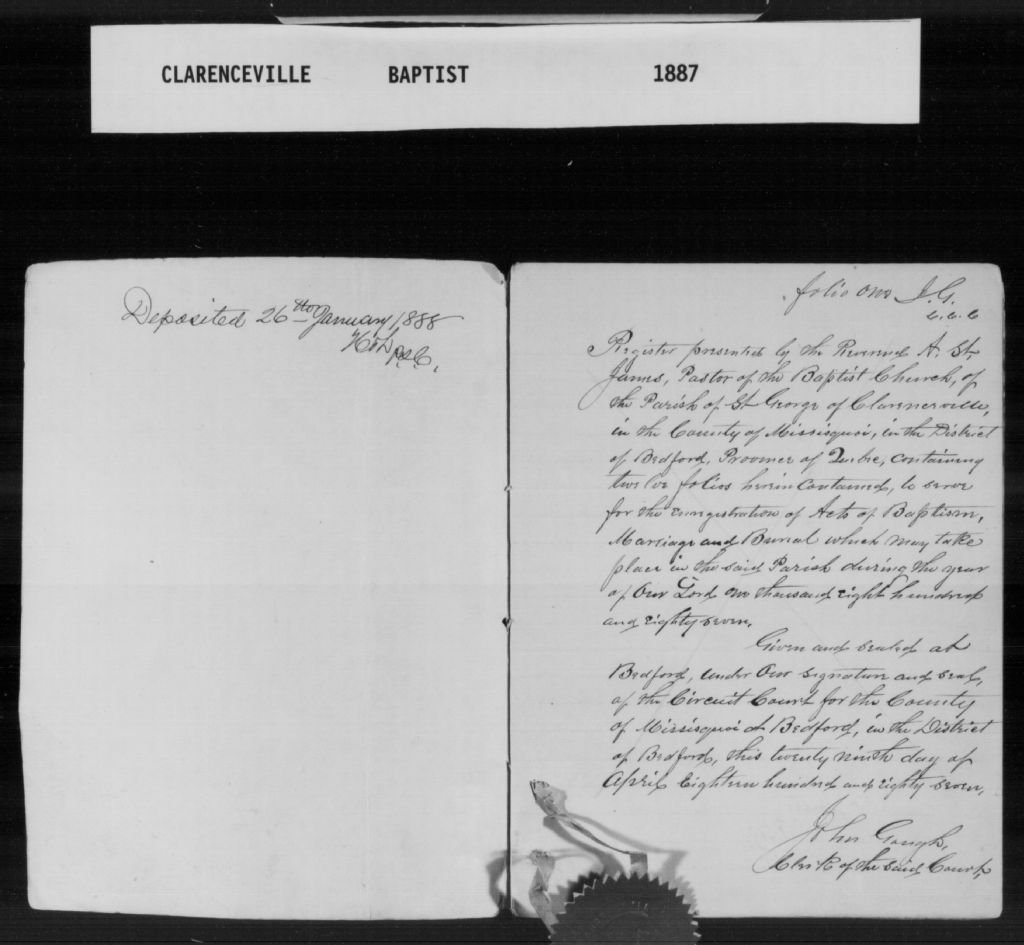 CLARENCEVILLE BAPTIST 1887
Deposited 26th January 1888
P.S.C.
folio one J.G.
C.C.C
Register presented by the Reverend A. St.
James, Pastor of the Baptist Church, of
the Parish of St George of Clarenceville,
in the County of Missisquoi, in the District
of Bedford, Province of Quebec, containing
twelve folios herein contained, to serve
for the enregistration of Acts of Baptism,
Marriage and Burial which may take
place in the said Parish during the year
of Our Lord one thousand eight hundred
and eighty seven.
Given and sealed at
Bedford, under Our signature and seal,
of the Circuit Court for the County
of Missisquoi at Bedford, in the District
of Bedford, this twenty ninth day of
April Eighteen hundred and eighty seven.
John Gough,
Clerk of the said Court,